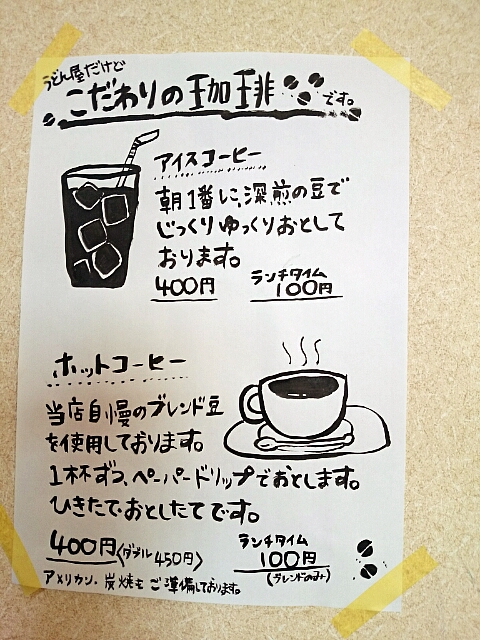 うどん屋だけど
こだわりの珈琲
です。
アイスコーヒー
朝1番に、深煎の豆で
じっくりゆっくりおとして
おります。
400円
ランチタイム
100円
ホットコーヒー
当店自慢のブレンド豆
を使用しております。
1杯ずつ、ペーパードリップでおとします。
ひきたておとしたてです。
400円〈ダブル450円〉
ランチタイム
100円
(ブレンドのみ)
アメリカン・炭焼もご準備しております。